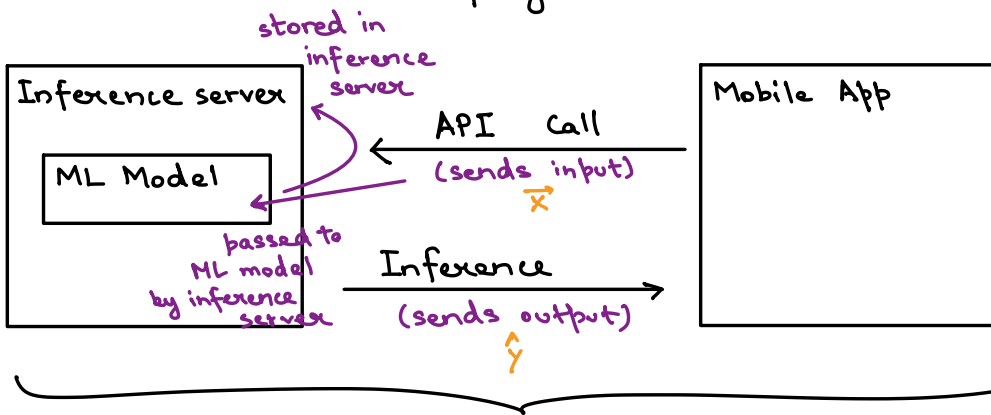 stored in
inference
server
Inference server
ML Model
API Call
(sends input)
x
Mobile App
passed to
ML model
by inference
server
Inference
(sends output)
ŷ